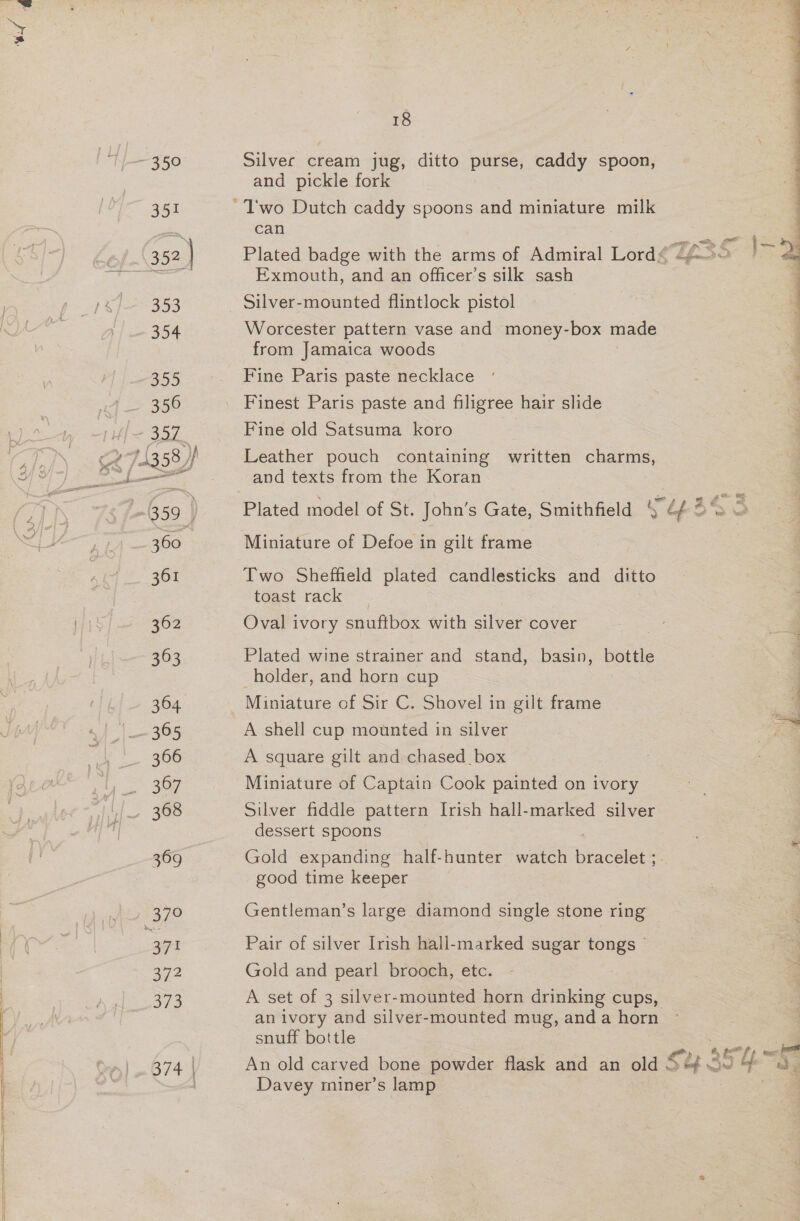 18
350 Silver cream jug, ditto purse, caddy spoon,
and pickle fork
351 Two Dutch caddy spoons and miniature milk
can
352 Plated badge with the arms of Admiral Lord
Exmouth, and an officer's silk sash
353 Silver-mounted flintlock pistol
354 Worcester pattern vase and money-box made
from Jamaica woods
355 Fine Paris paste necklace
356 Finest Paris paste and filigree hair slide
357 Fine old Satsuma koro
358 Leather pouch containing written charms,
and texts from the Koran
359 Plated model of St. John's Gate, Smithfield
360 Miniature of Defoe in gilt frame
361 Two Sheffield plated candlesticks and ditto
toast rack
362 Oval ivory snuffbox with silver cover
363 Plated wine strainer and stand, basin, bottle
holder, and horn cup
364 Miniature of Sir C. Shovel in gilt frame
365 A shell cup mounted in silver
366 A square gilt and chased box
367 Miniature of Captain Cook painted on ivory
368 Silver fiddle pattern Irish hall-marked silver
dessert spoons
369 Gold expanding half-hunter watch bracelet;
good time keeper
370 Gentleman's large diamond single stone ring
371 Pair of silver Irish hall-marked sugar tongs
372 Gold and pearl brooch, etc.
373 A set of 3 silver-mounted horn drinking cups,
an ivory and silver-mounted mug, and a horn
snuff bottle
374 An old carved bone powder flask and an old
Davey miner's lamp